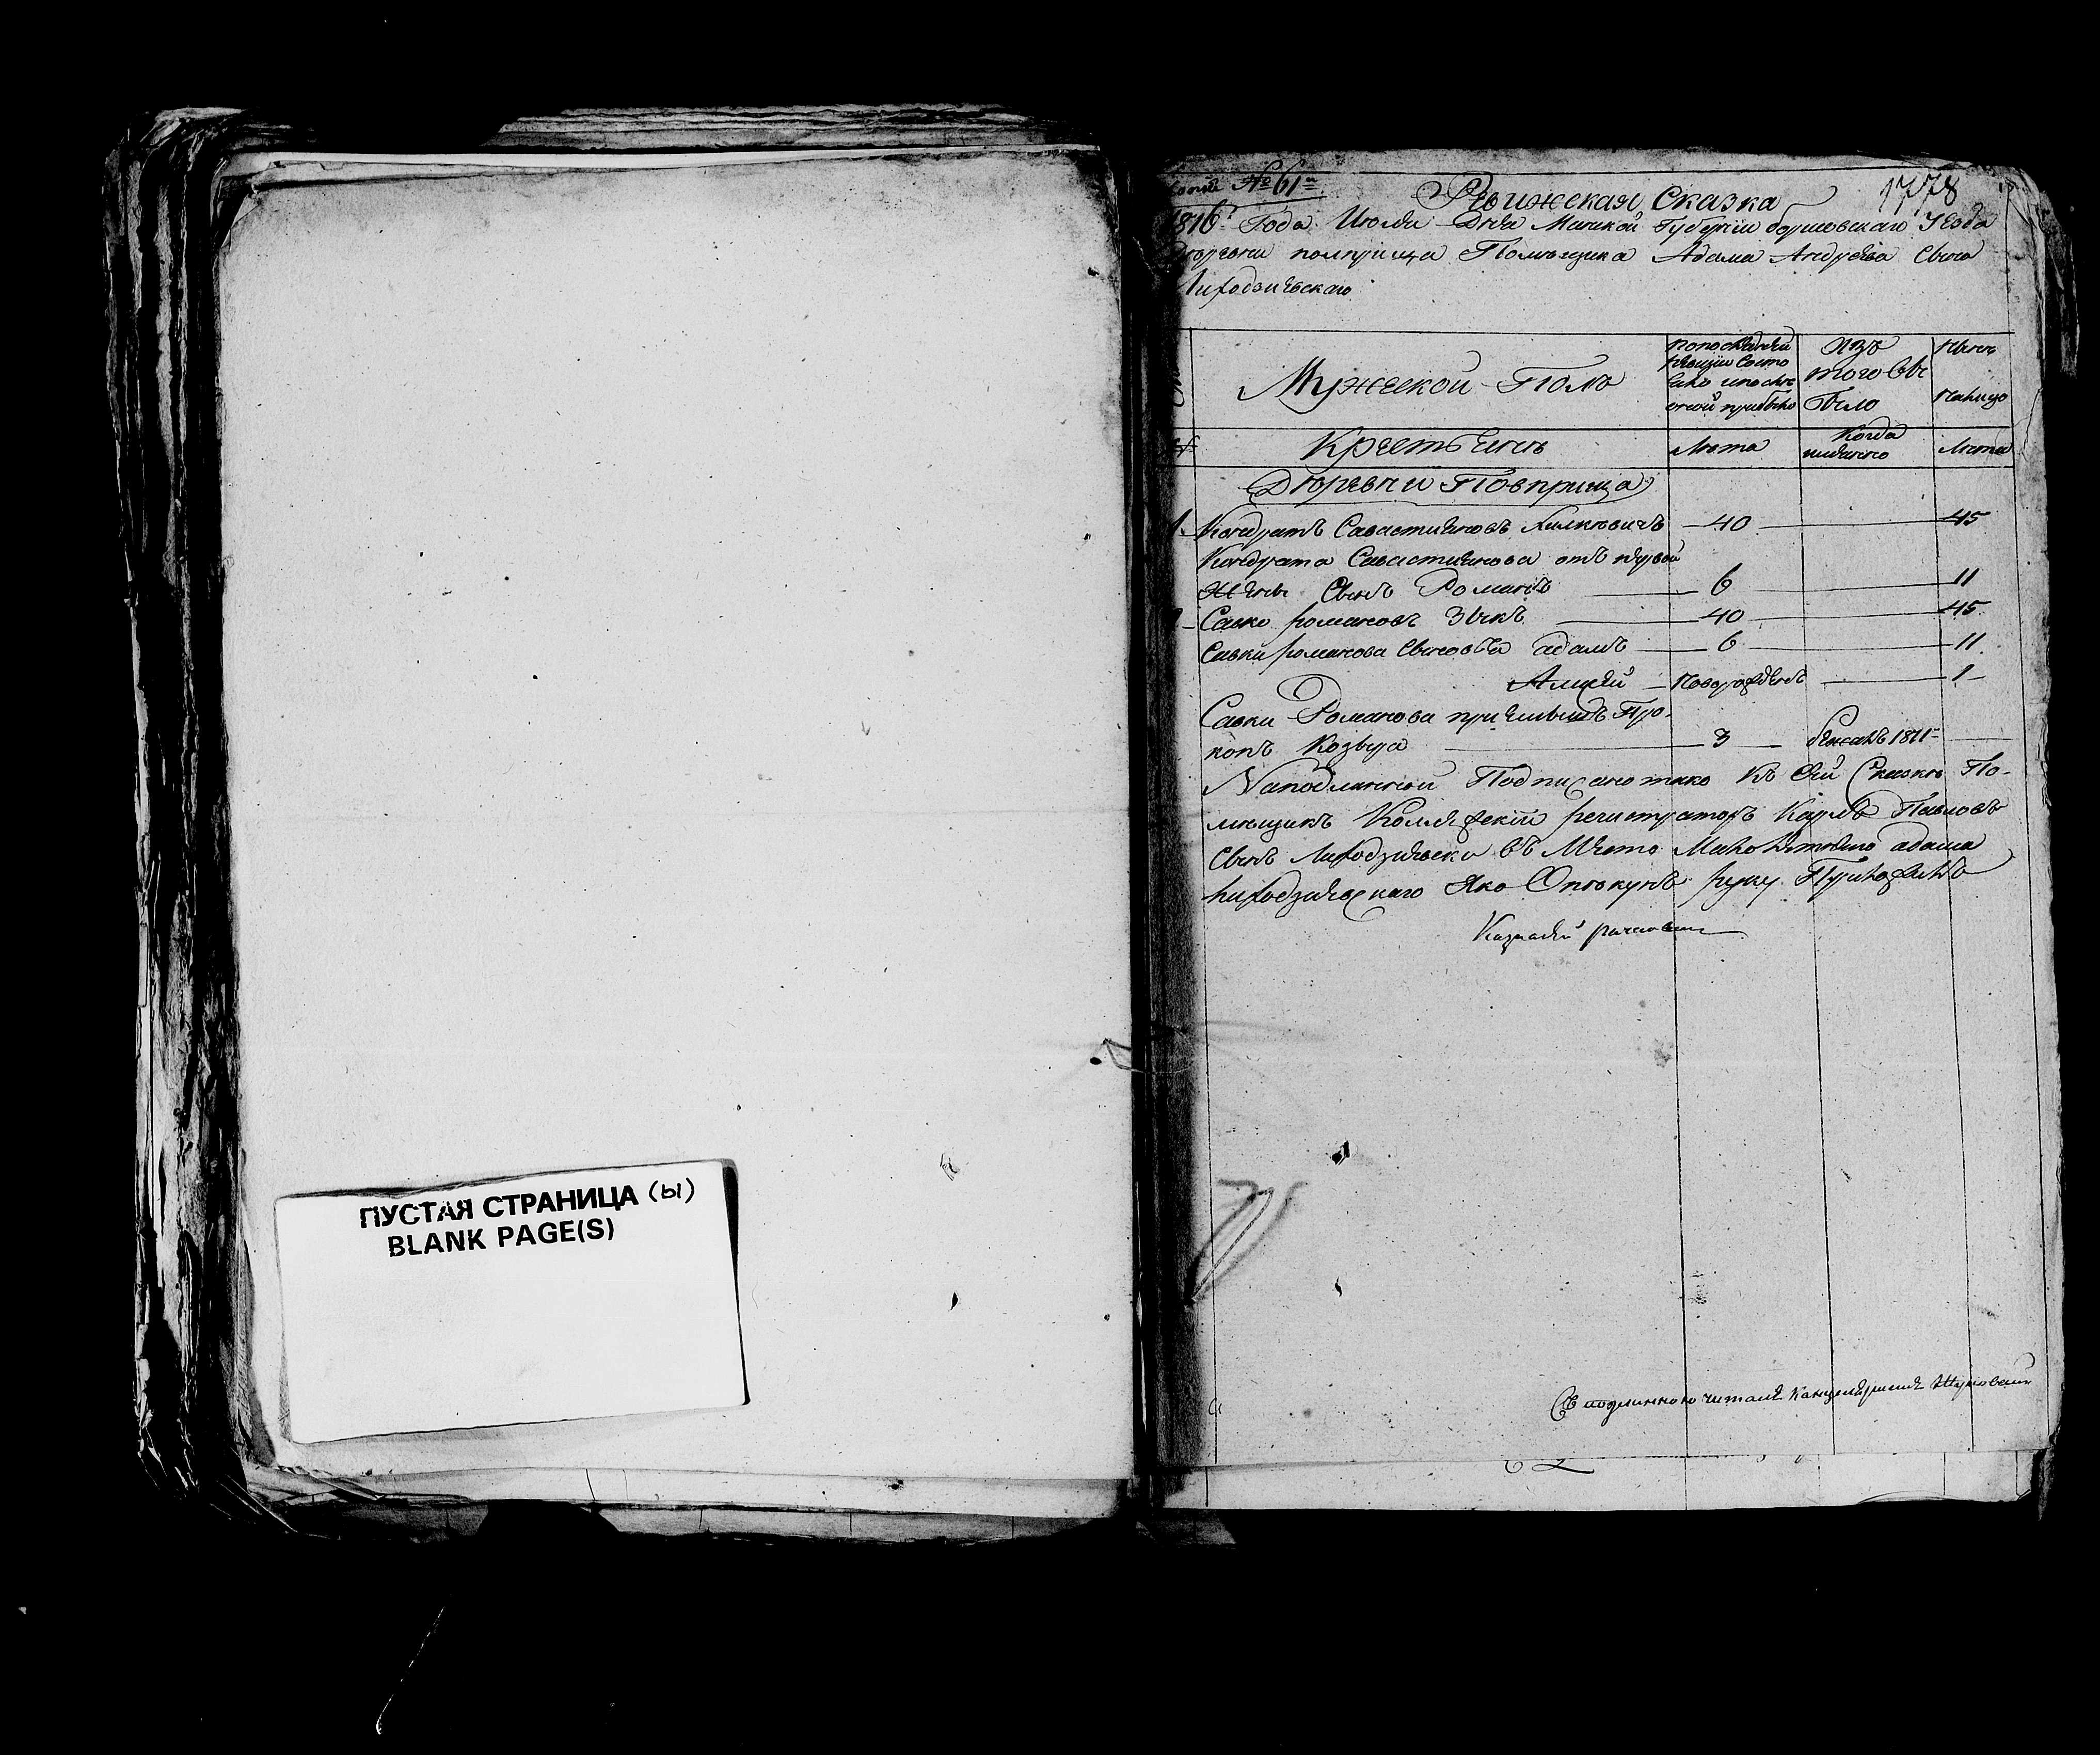 ПУСТАЯ СТРАНИЦА (ы)
BLANK PAGE(S)
копия № 61й
1778
Ревижская Сказка
1816г Года Июля Дня Минской Губернии борисовскаго Уезда
Деревни помприща Помещика Адама Андреева Сына
Лиходзиевскаго
Мужеской Полъ
попоследней ревизии состо яло ипосле оной прибыло
Изъ того вы было
Ныне налицо
Крестьяне
Лета
Когда имянно
Лета
Деревни Повприща
1 Кондратъ Савастияновъ 40 45
Кондрата Савастиянова отъ первой
жены Сынъ Романъ 6 11
2 Савко романовъ Зыкъ 40 45
Савки романова Сыновья адамъ 6 11
Новорожденъ 1
Савки Романова приемышъ Про-
копъ Козыра 3 бежалъ 1811
Наподлинной Подписано тако Къ Сей Сказке По-
мещикъ Колежский регистраторъ Карлъ Павловъ
Сынъ Лиходзиевски въ Место Малолетняго адама
лиходзиевскаго Яко Опекунъ руку Приложилъ
Казначей
Съ подлинною читалъ Канцеляристъ